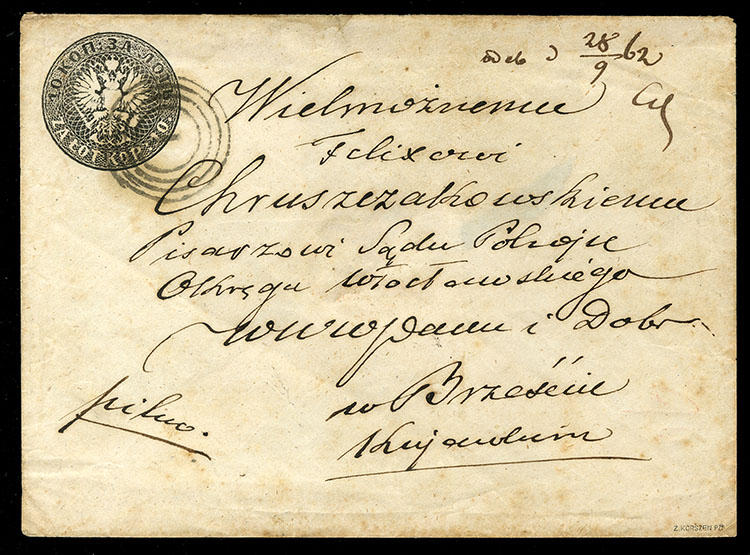 10 КОП. ЗА ЛОТЪ
ЗА ОТ. КОР. 10
28/9 62
Wielmożnemu
Felixowi
Chruszczakowskiemu
Pisarzowi Sądu Pokoju
Okręgu Włocławskiego
i Dobr
w Brześciu
Kujawskim
pilno.
Z. KORSZEŃ PZF